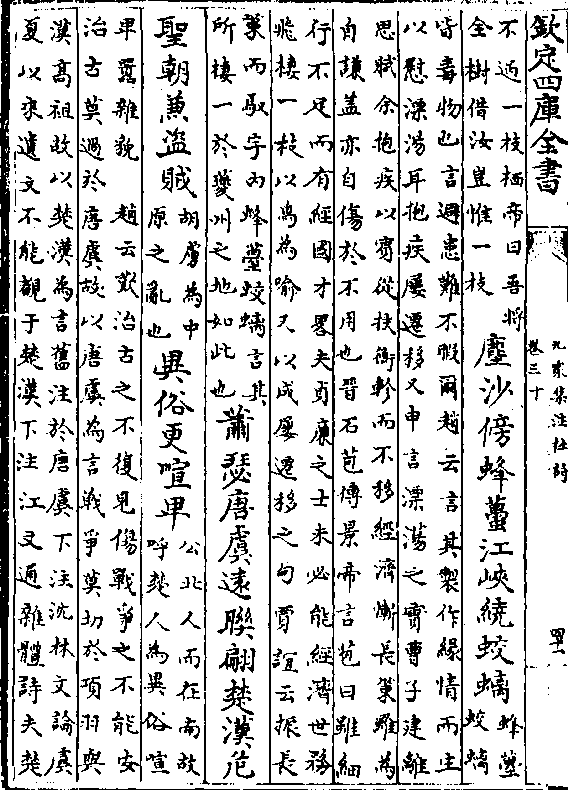 欽定四庫全書
九家集注杜詩
卷三十
四十一
不過一枝栖帝曰吾將
全樹借汝豈惟一枝
塵沙傍蜂蠆江峽繞蛟螭
蜂蠆
蛟螭
皆毒物也言避患難不暇爾趙云言其製作緣情而主
以慰漂蕩耳抱疾屢遷移又申言漂蕩之實曹子建離
思賦余抱疾以賓從扶衡軫而不移經濟慚長策雖為
自謙蓋亦自傷於不用也晉石苞傳景帝言苞曰雖細
行不足而有經國才畧夫貞廉之士未必能經濟世務
飛棲一枝以鳥為喻又以成屢遷移之句賈誼云振長
策而馭宇內蜂蠆蛟螭言其
所棲一於夔州之地如此也
蕭瑟唐虞遠聯翩楚漢危
聖朝兼盜賊
胡虜為中
原之亂也
異俗更喧卑
公北人而在南故
呼楚人為異俗喧
卑囂雜貌 趙云歎治古之不復見傷戰爭之不能安
治古莫過於唐虞故以唐虞為言戰爭莫切於項羽與
漢高祖故以楚漢為言舊注於唐虞下注沈林文論虞
夏以來遺文不能覩于楚漢下注江文通雜體詩夫楚